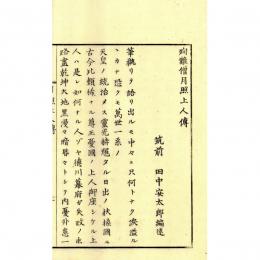 殉難僧月照上人傳
筑前　田中安太郎編述
筆執リヲ語リ出ルモ中々ニ只何トナク涙溢ル
ヽカナ恐クモ萬世一系ノ
天皇ノ統治メス靈光赫タル日出ノ扶桑國ニ
古今比類稀ナル尊王愛國ノ上人御座シケル上
人ハ是レ如何ナル人ゾヤ德川幕府ガ失政ノ末
路盡乾坤大地黒漫々暗々トシテ内憂外患一
月照上人傳